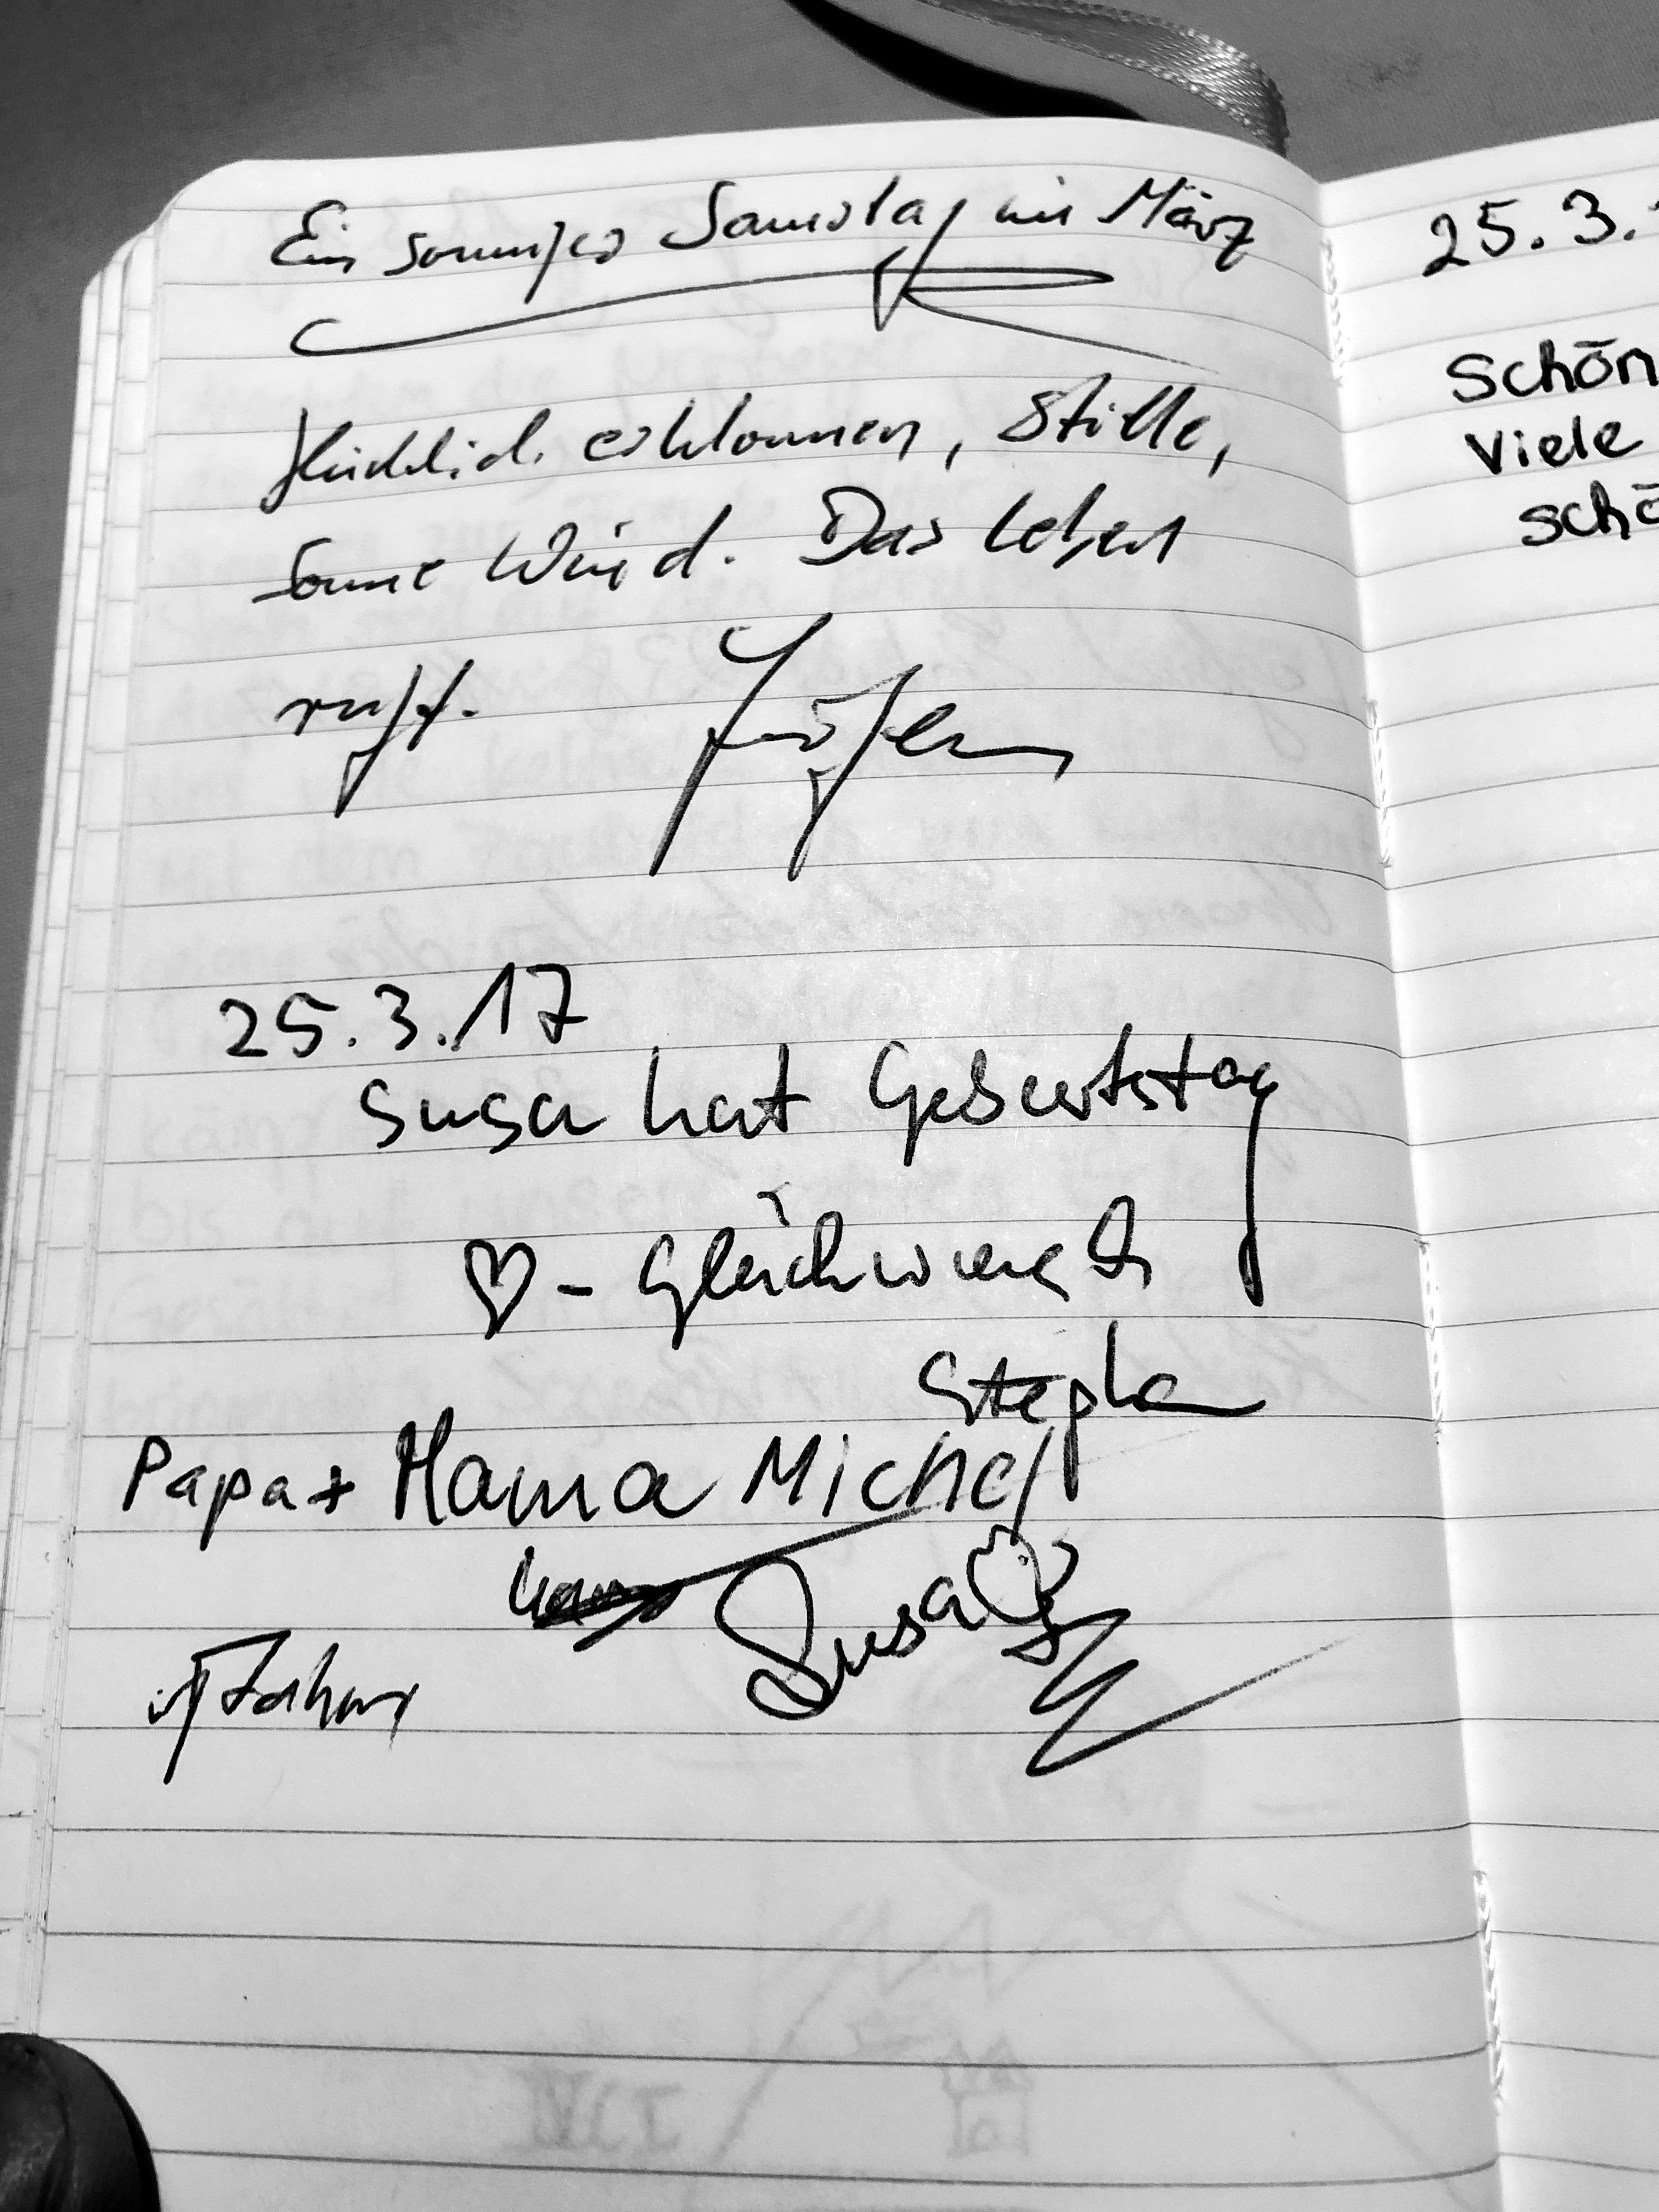 Ein sonniger Samstag im März
glücklich erklommen, Stille,
Sonne Wind. Das Leben
ruft.
25.3.17
Susa hat Geburtstag
♡ - Glückwunsch
Stephan
Papa + Mama Michel
Susa
25.3.
Schön
Viele
schö